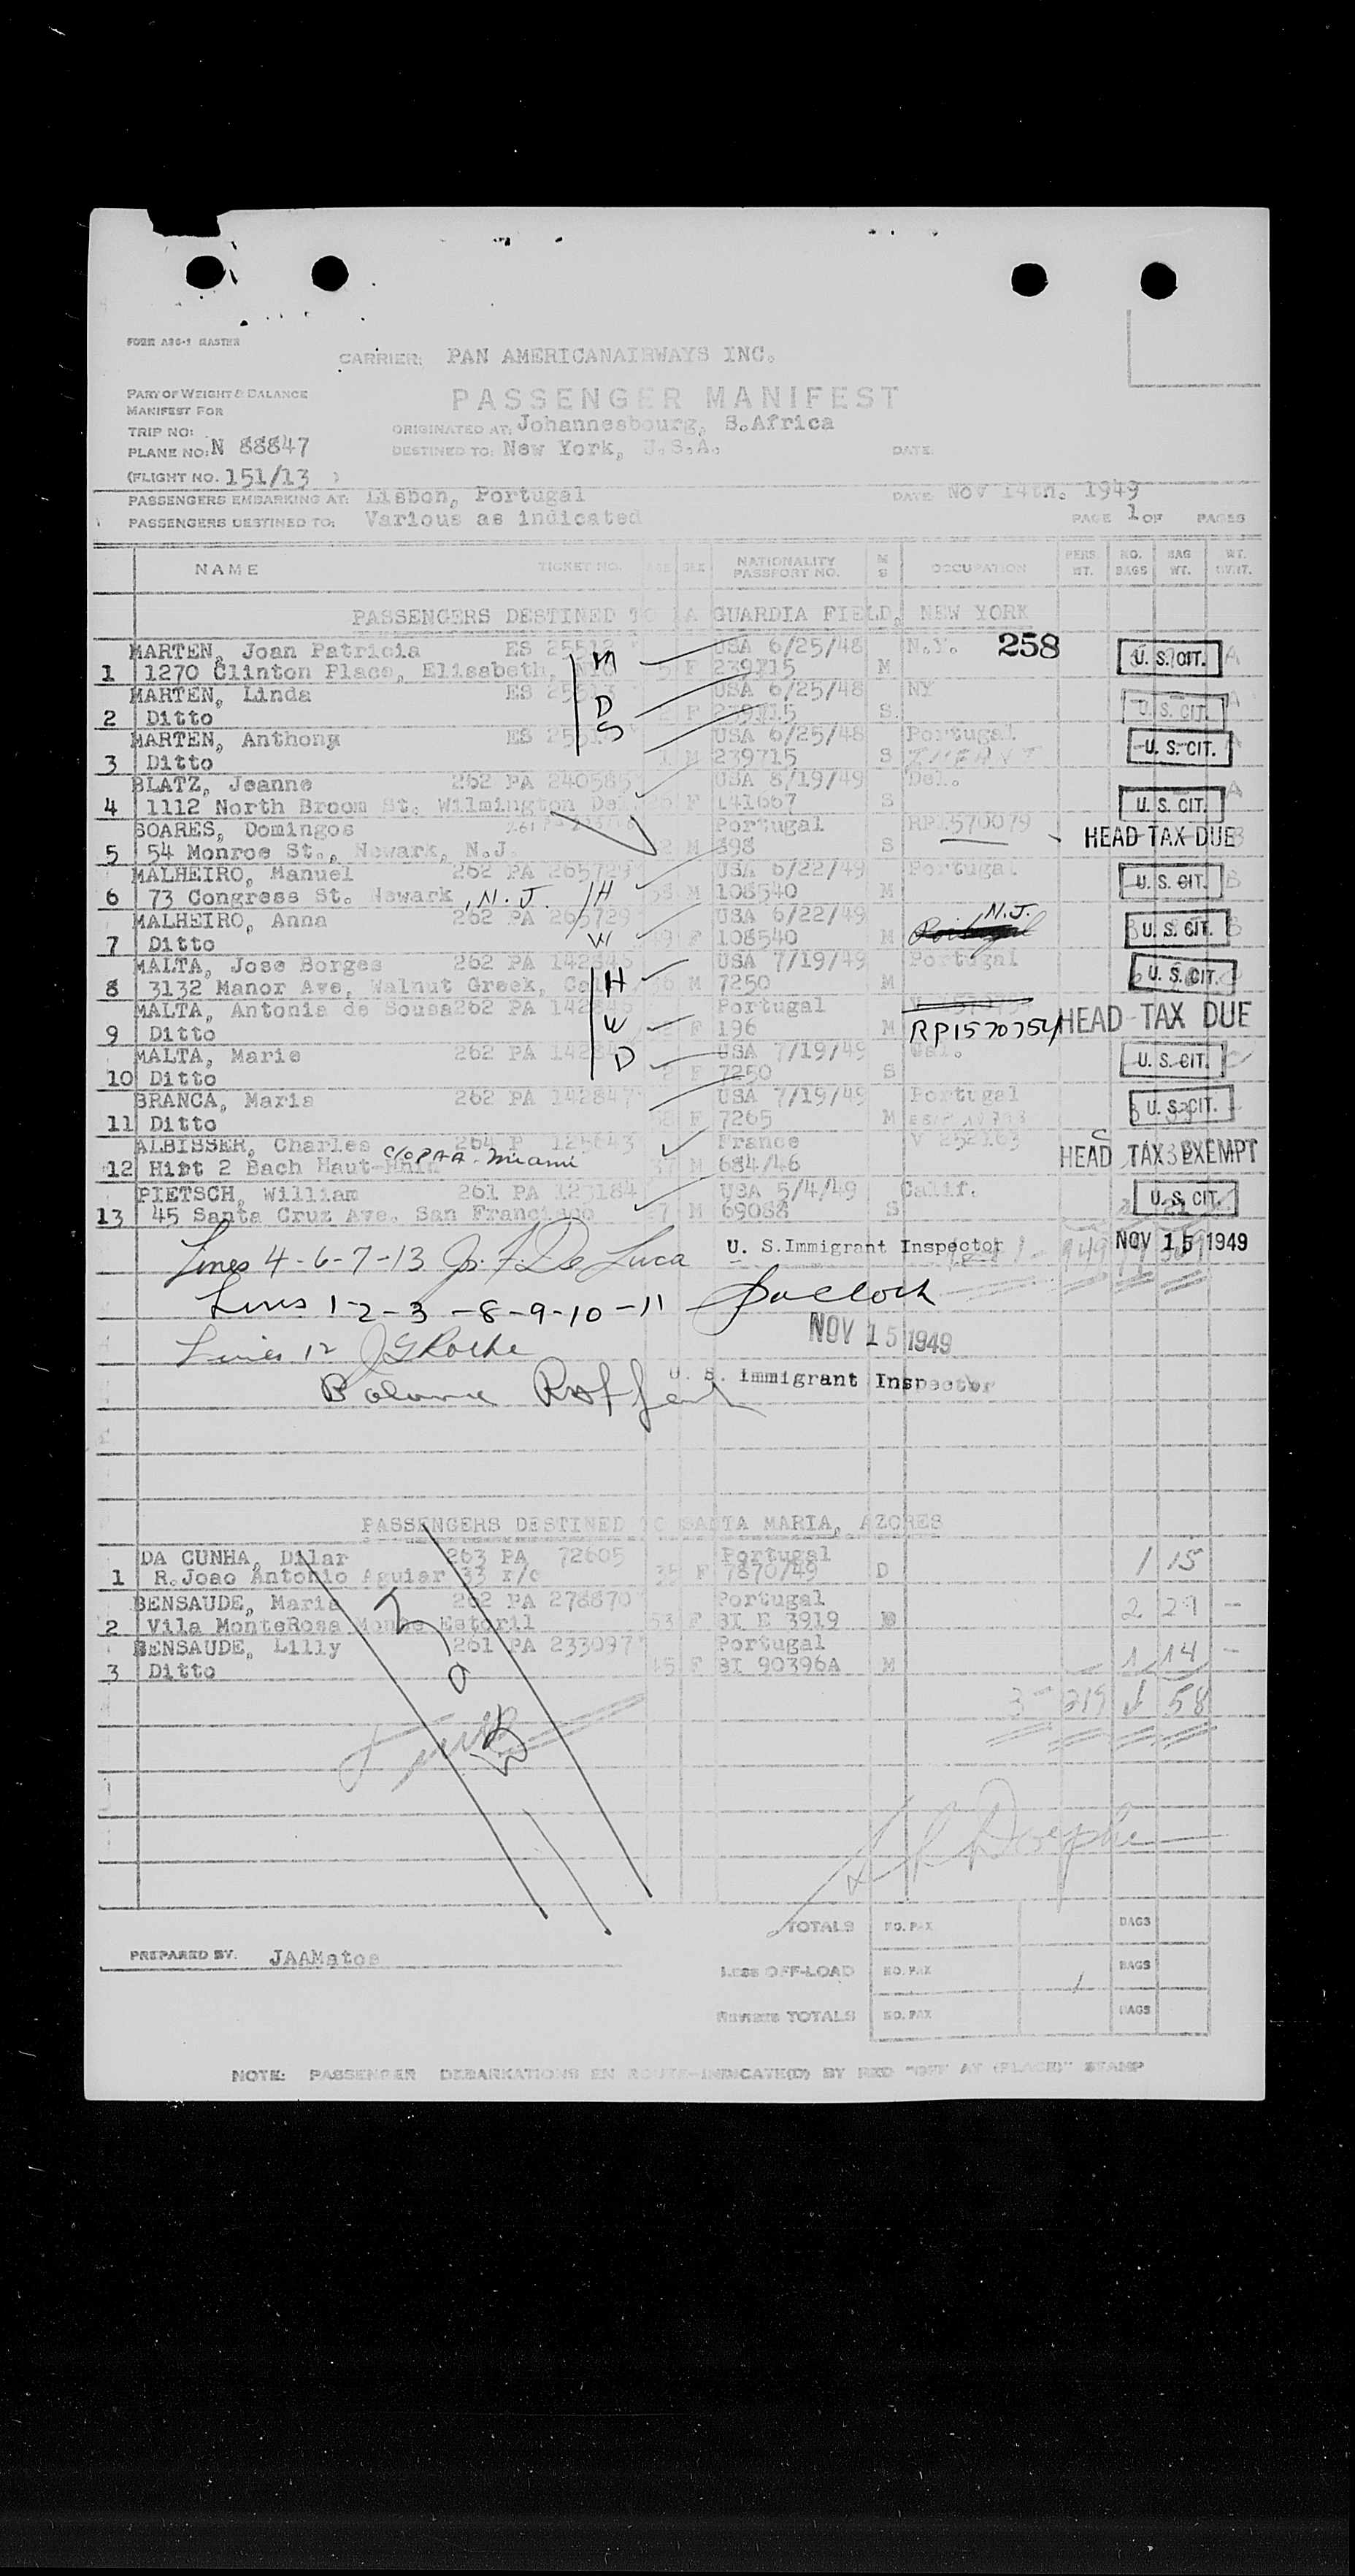 FORM ABG-1 MASTER
CARRIER: PAN AMERICANAIRWAYS INC.
PART OF WEIGHT & BALANCE
MANIFEST FOR
PASSENGER MANIFEST
TRIP NO:
ORIGINATED AT: Johannesbourg, S.Africa
PLANE NO: N 88847
DESTINED TO: New York, U.S.A.
DATE
(FLIGHT NO. 151/13 )
PASSENGERS EMBARKING AT: Lisbon, Portugal
DATE Nov 14th. 1949
PASSENGERS DESTINED TO: Various as indicated
PAGE 1 OF PAGES
NAME TICKET NO. AGE SEX NATIONALITY PASSPORT NO. M S OCCUPATION PERS. WT. NO. BAGS BAG WT. WT.
PASSENGERS DESTINED TO LA GUARDIA FIELD, NEW YORK
MARTEN, Joan Patricia ES 25512 USA 6/25/48 N.Y. 258
1 1270 Clinton Place, Elisabeth, M 5 F 239715 M U. S. CIT. A
MARTEN, Linda ES 25513 USA 6/25/48 NY
2 Ditto D 2 F 239715 S U. S. CIT. A
MARTEN, Anthony ES USA 6/25/48 Portugal
3 Ditto S 1 M 239715 S INFANT U. S. CIT.
BLATZ, Jeanne 262 PA 240585 USA 8/19/49 Del.
4 1112 North Broom St. Wilmington Del 26 F 141667 S U. S. CIT. A
SOARES, Domingos Portugal RP1570079
5 54 Monroe St., Newark, N.J. M 898 S HEAD TAX DUE B
MALHEIRO, Manuel 262 PA 265729 USA 6/22/49 Portugal
6 73 Congress St. Newark, N.J. H 58 M 108540 M U. S. CIT. B
MALHEIRO, Anna 262 PA 265729 USA 6/22/49 N.J.
7 Ditto W 49 F 108540 M U. S. CIT. B
MALTA, Jose Borges 262 PA 142845 USA 7/19/49 Portugal
8 3132 Manor Ave, Walnut Greek, Cal H 36 M 7250 M U. S. CIT.
MALTA, Antonia de Sousa 262 PA Portugal
9 Ditto W F 196 M RP1570754 HEAD TAX DUE
MALTA, Marie 262 PA USA 7/19/49 Cal.
10 Ditto D 2 F 7250 S U. S. CIT.
BRANCA, Maria 262 PA 142847 USA 7/19/49 Portugal
11 Ditto 58 F 7265 M U. S. CIT.
ALBISSER, Charles 264 P 125643 France V 252163
12 Hirt 2 Bach Haut-Rhin C/O PAA - Miami 37 M 684/46 HEAD TAX EXEMPT
PIETSCH, William 261 PA 123184 USA 5/4/49 Calif.
13 45 Santa Cruz Ave. San Francisco 27 M 69088 S U. S. CIT.
Lines 4-6-7-13 Js. F. De Luca U. S. Immigrant Inspector NOV 15 1949
Lines 1-2-3-8-9-10-11
NOV 15 1949
Lines 12 J G Roche
U. S. Immigrant Inspector
Balance
PASSENGERS DESTINED TO SANTA MARIA, AZORES
DA CUNHA, Dilar 263 PA 72605 Portugal
1 R.Joao Antonio Aguiar 33 r/c 35 F 7870/49 D 1 15
BENSAUDE, Maria 262 PA 278870 Portugal
2 Vila MonteRosa Monte Estoril 53 F BI E 3919 2 29 -
BENSAUDE, Lilly 261 PA 233097 Portugal
3 Ditto 45 F BI 90396A M 1 14 -
3 319 58
TOTALS NO. PAX BAGS
PREPARED BY. JAAMatos
LESS OFF-LOAD NO. PAX BAGS
TOTALS NO. PAX BAGS
NOTE: PASSENGER DEBARKATIONS EN ROUTE-INDICATE(D) BY RED "OFF AT (PLACE)" STAMP